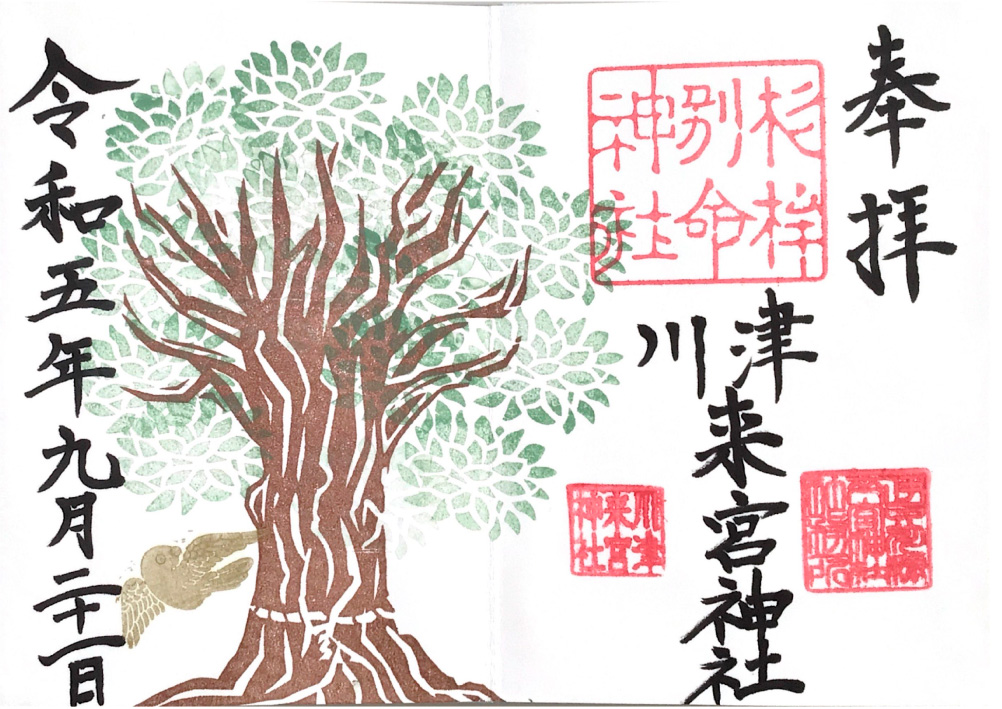 奉拝
杉桙
別命
神社
川津
来宮神社
川津
来宮
神社
令和五年九月二十一日